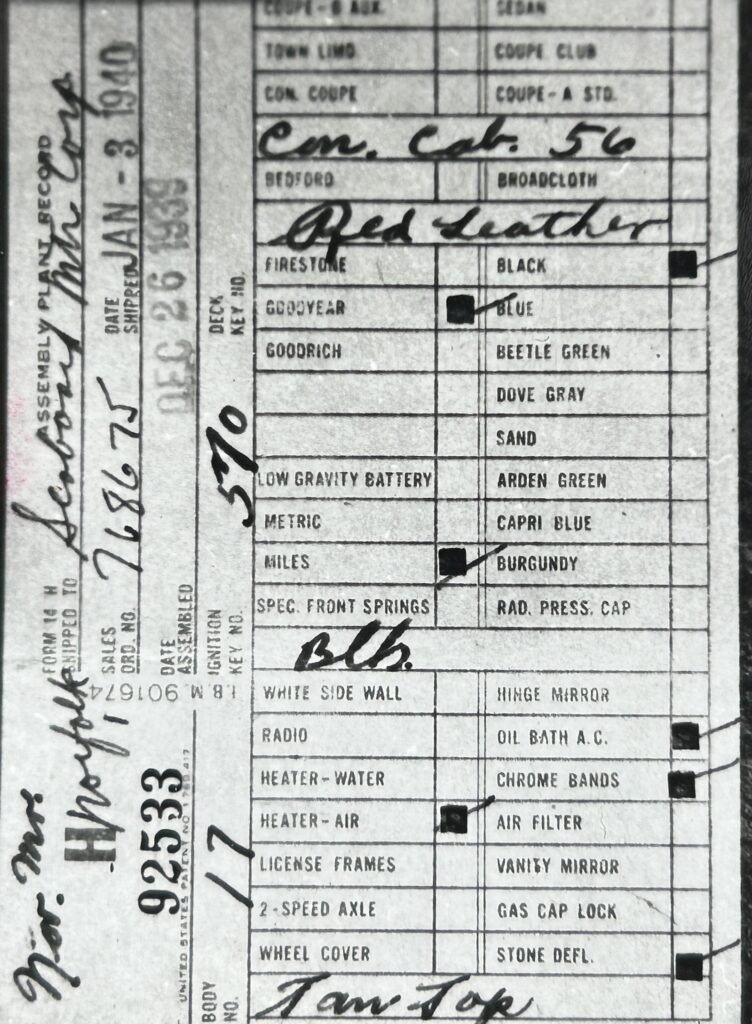 COUPE-B AUX. SEDAN
TOWN LIMO COUPE CLUB
CON. COUPE COUPE-A STD.
Con. Cab. 56
BEDFORD BROADCLOTH
Red Leather
FIRESTONE BLACK
GOODYEAR BLUE
GOODRICH BEETLE GREEN
DOVE GRAY
SAND
LOW GRAVITY BATTERY ARDEN GREEN
METRIC CAPRI BLUE
MILES BURGUNDY
SPEC. FRONT SPRINGS RAD. PRESS. CAP
Blk.
WHITE SIDE WALL HINGE MIRROR
RADIO OIL BATH A.C.
HEATER-WATER CHROME BANDS
HEATER-AIR AIR FILTER
LICENSE FRAMES VANITY MIRROR
2-SPEED AXLE GAS CAP LOCK
WHEEL COVER STONE DEFL.
Tan Top
FORM 14 H ASSEMBLY PLANT RECORD
SHIPPED TO Seaboard Mtr Corp
Norfolk
SALES ORD. NO. 768675 DATE SHIPPED JAN - 3 1940
DATE ASSEMBLED DEC 26 1939
IGNITION KEY NO. 570 DECK KEY NO.
I.B.M. 901674
Nor. Mrs.
H
92533
UNITED STATES PATENT NO. 1,780,417
BODY NO. 17